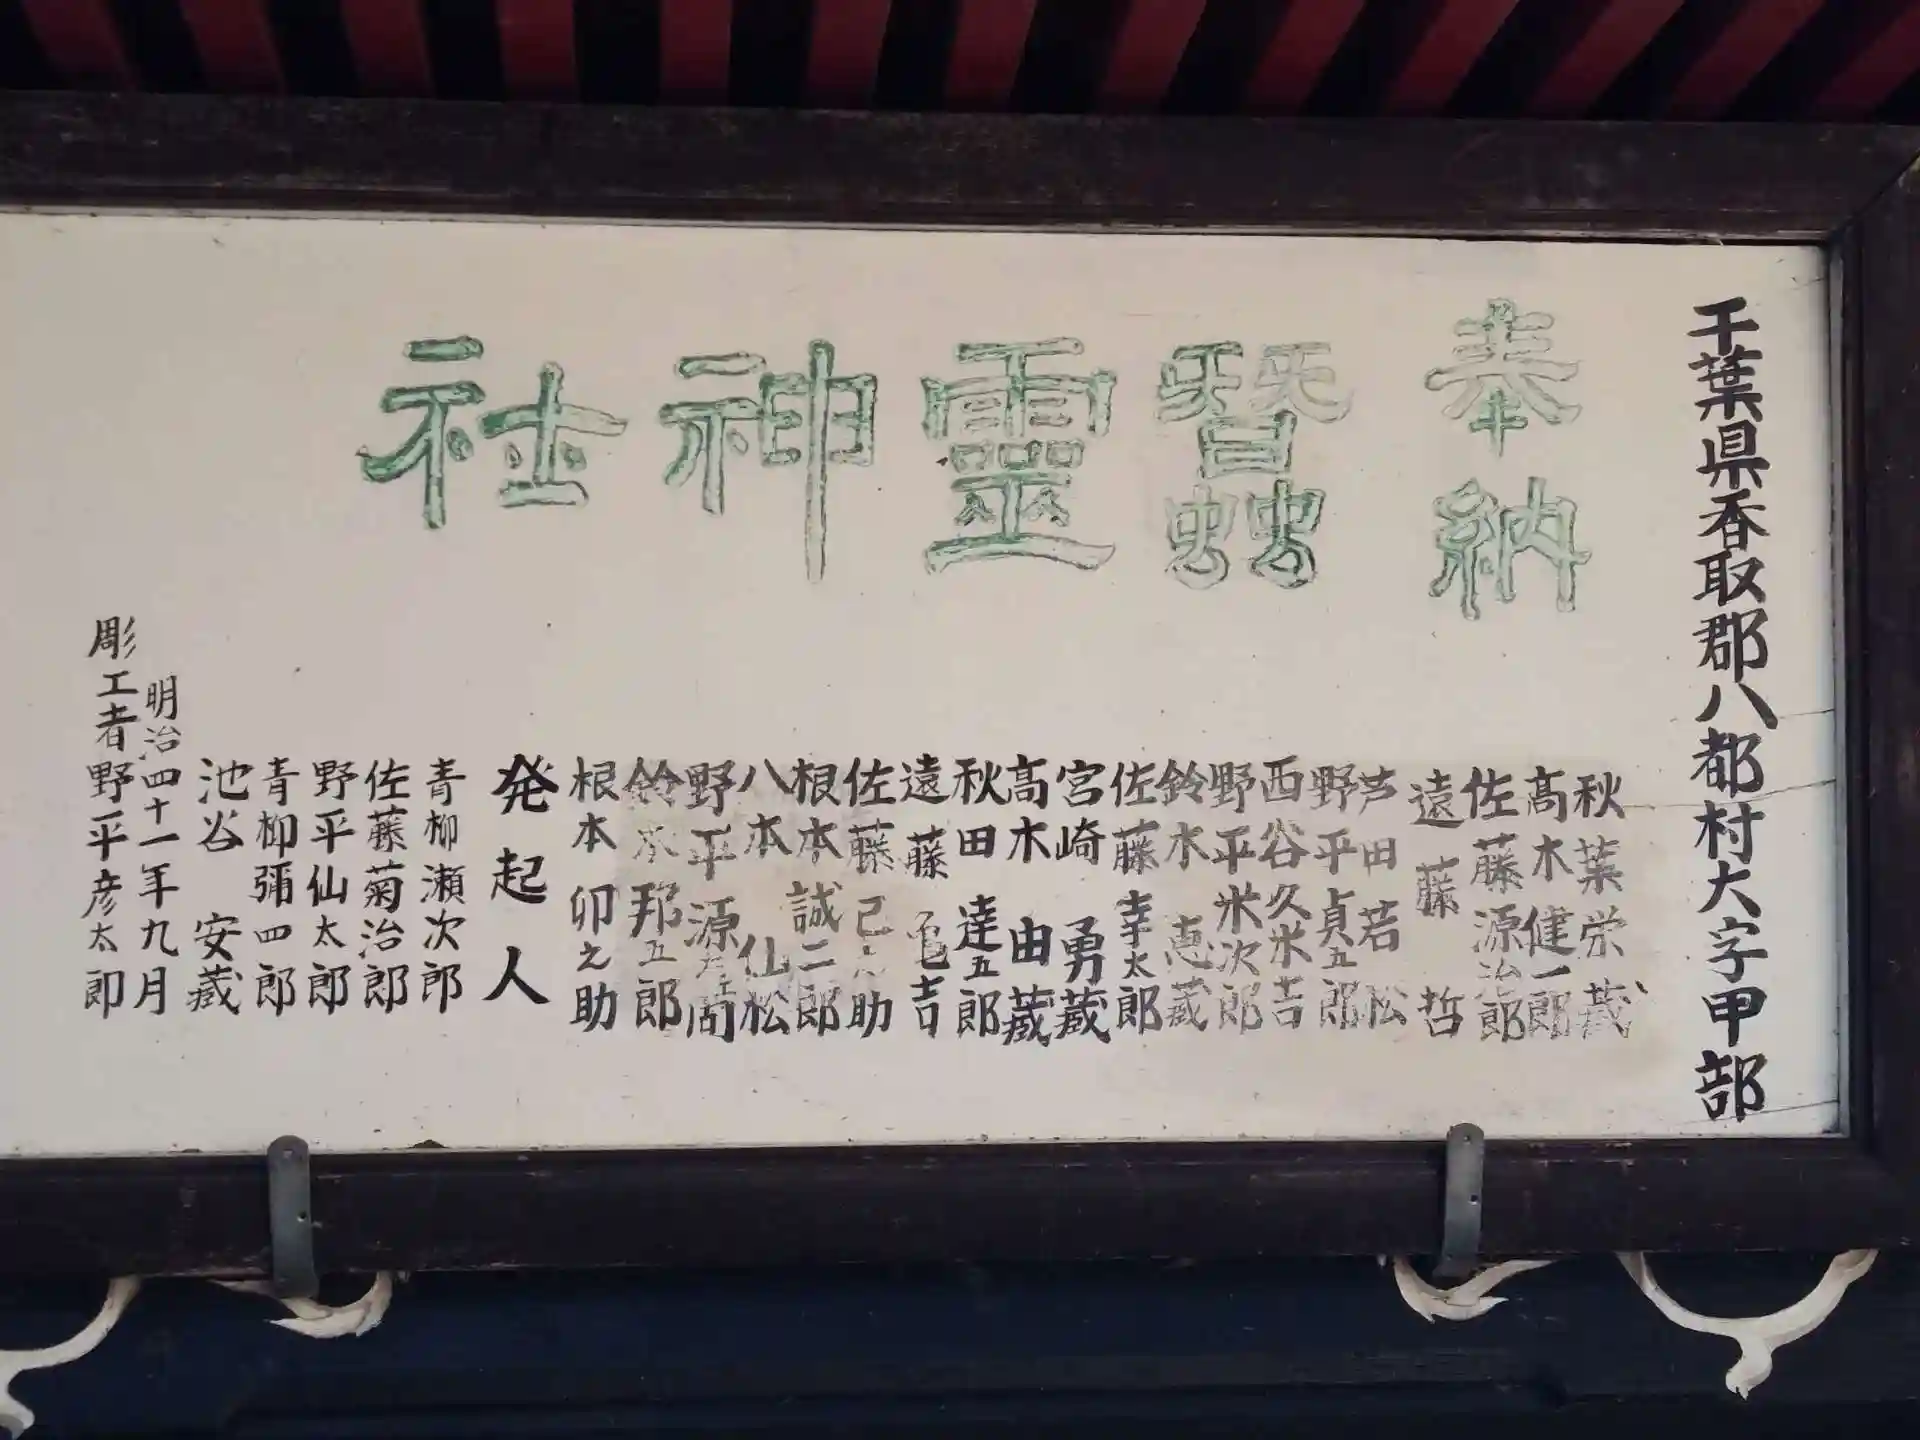 千葉県香取郡八都村大字甲部
奉納
蠶靈神社
秋葉栄蔵
髙木健一郎
佐藤源治郎
遠藤哲
芦田若松
野平貞五郎
西谷久米吉
野平米次郎
鈴木恵蔵
佐藤幸太郎
宮崎勇蔵
髙木由蔵
秋田達五郎
遠藤亀吉
佐藤己之助
根本誠二郎
八本仙松
野平源
鈴木邦五郎
根本卯之助
発起人
青柳瀬次郎
佐藤菊治郎
野平仙太郎
青柳彌四郎
池谷安蔵
明治四十一年九月
彫工者野平彦太郎